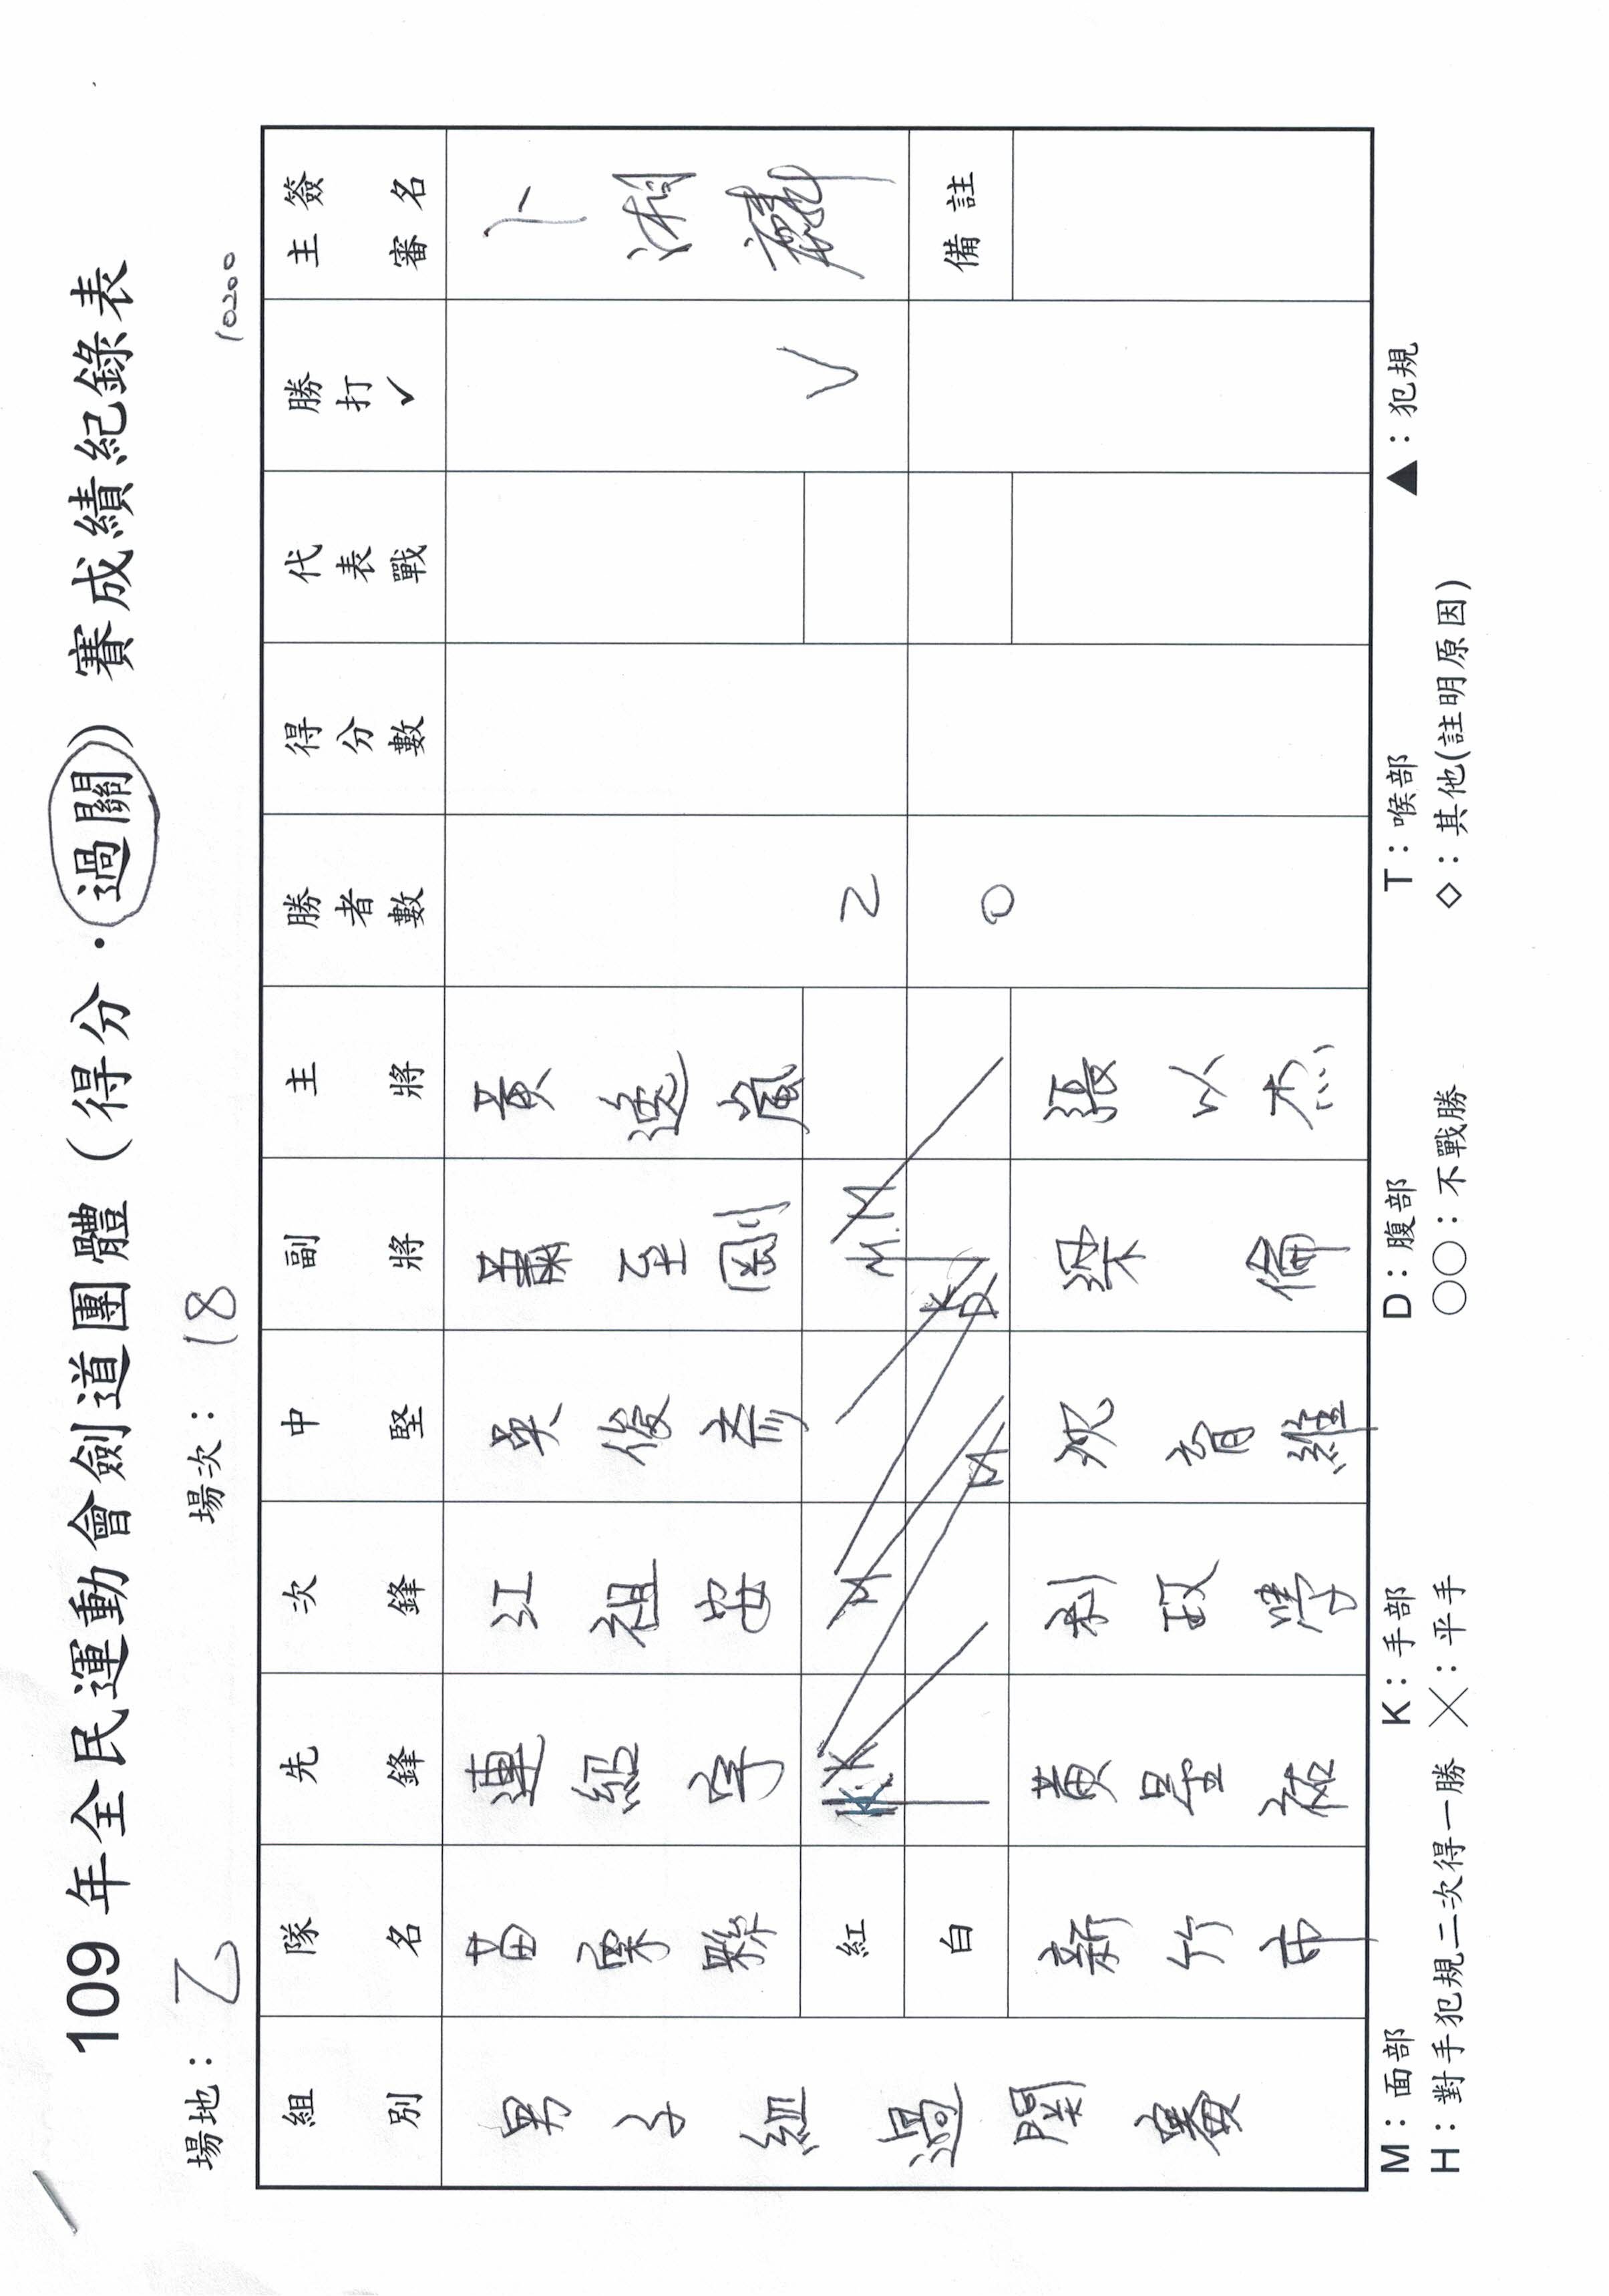 109 年全民運動會劍道團體（得分 · 過關）賽成績紀錄表
場地： 乙 場次： 18 10200
組別 隊名 先鋒 次鋒 中堅 副將 主將 勝者數 得分數 代表戰 勝打✓ 主審簽名
男子組過關賽 苗栗縣 江祖安 吳俊彥 蕭至剛 黃逸嵐 ✓
紅 K K M M M 2
白 M K D 0 備註
新竹市 黃昱祐 梁倫 張以杰
M：面部 K：手部 D：腹部 T：喉部 ▲：犯規
H：對手犯規二次得一勝 ╳：平手 ○○：不戰勝 ◇：其他(註明原因)